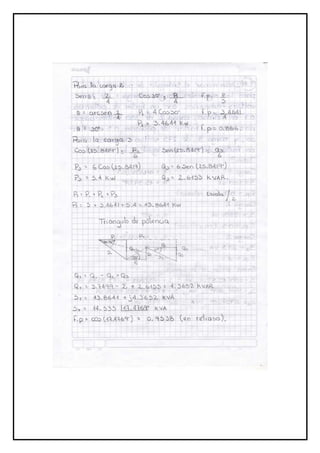 Para la carga 2
Senθ = 2/4 Cos30° = P₂/4 f.p. = P/S
θ = arcsen 2/4 P₂ = 4 Cos30° f.p. = 3.4641/4
P₂ = 3.4641 Kw
θ = 30° f.p. = 0.866
Para la carga 3
Cos(25.8419°) = P₃/6 Sen(25.8419°) = Q₃/6
P₃ = 6 Cos(25.8419°) Q₃ = 6 Sen(25.8419°)
P₃ = 5.4 Kw Q₃ = 2.6153 KVAR.
Pt = P₁ + P₂ + P₃
Pt = 5 + 3.4641 + 5.4 = 13.8641 Kw
Triangulo de potencia
Qt = Q₁ - Q₂ + Q₃
Qt = 3.7499 - 2 + 2.6153 = 4.3652 KVAR
St = 13.8641 + j4.3652 KVA
St = 14.535 |17.4768° KVA
f.p = cos(17.4768°) = 0.9538 (en retraso).